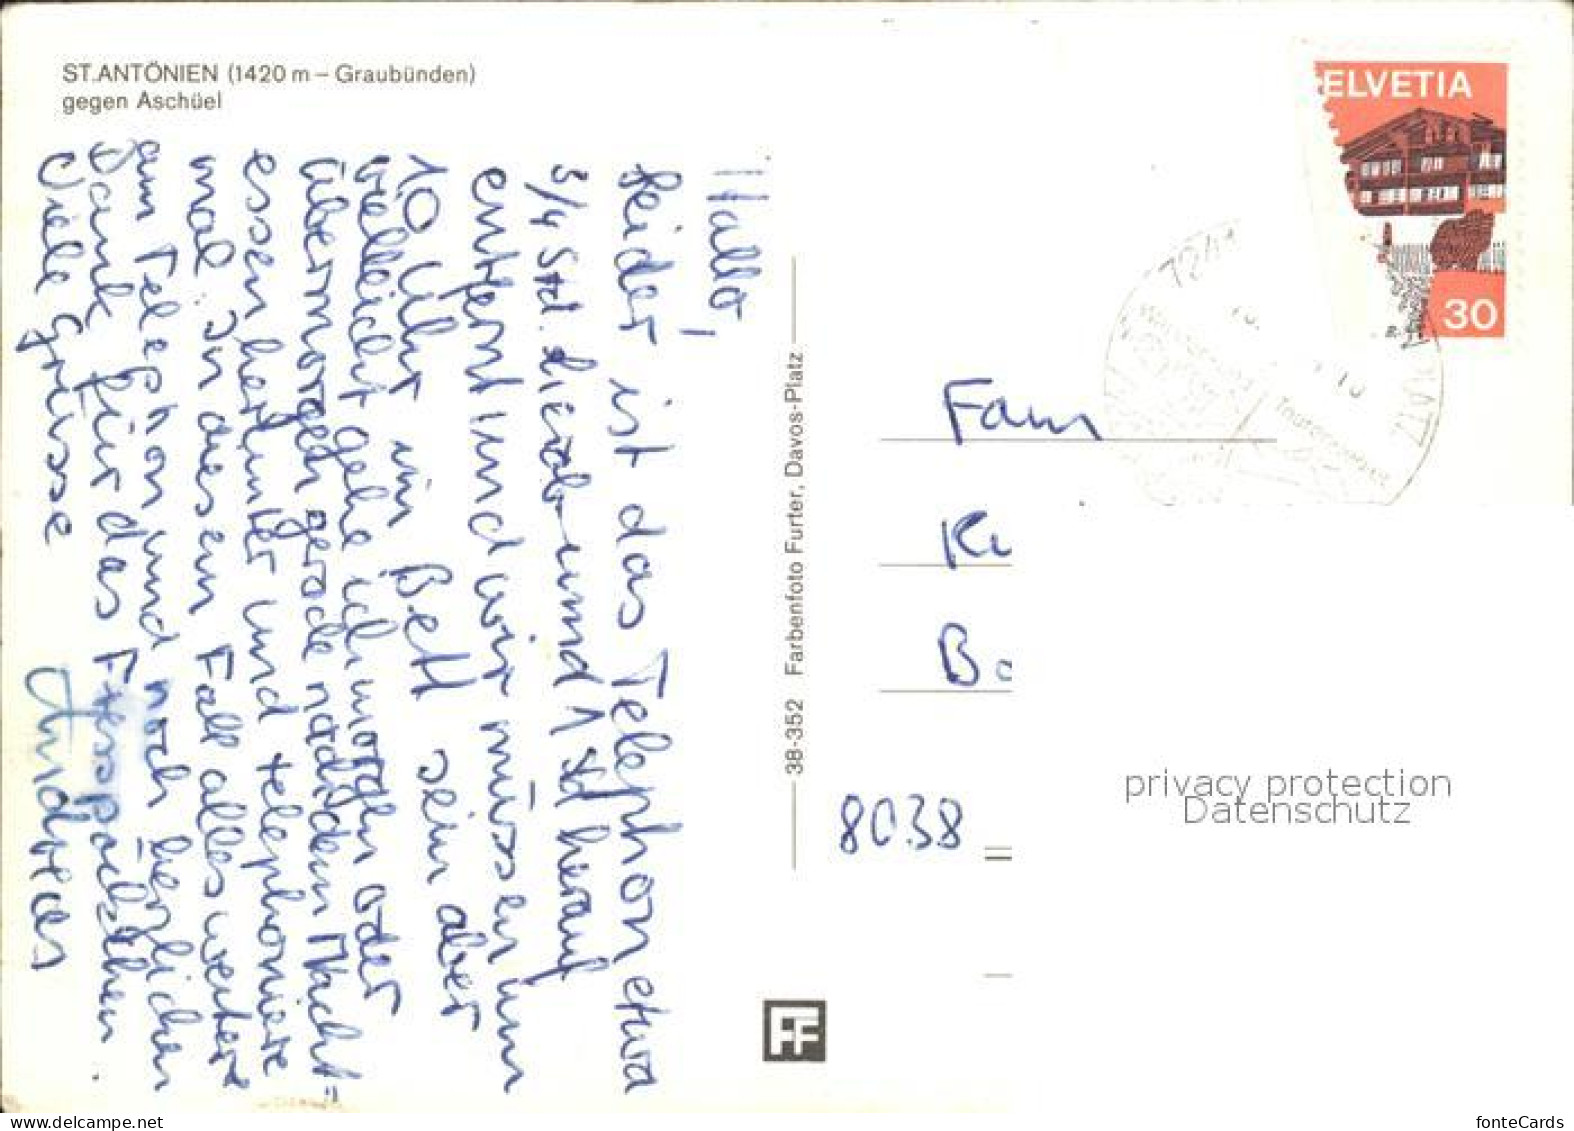 ST.ANTÖNIEN (1420 m – Graubünden)
gegen Aschüel
Hallo,
Leider ist das Telephon etwa
3/4 Std. hierab und 1 Std hierauf
entfernt und wir müssen um
10 Uhr im Bett sein aber
vielleicht gehe ich morgen oder
übermorgen gerade nach dem Nacht-
essen herunter und telephoniere
mal. In diesem Fall alles weitere
am Telephon und noch herzlichen
Dank für das Fresspäckchen.
Viele Grüsse
Andreas
38-352 Farbenfoto Furter, Davos-Platz
FF
HELVETIA
30
B.
7241
Tourengebiet
Fam
K
B
8038
privacy protection
Datenschutz
fonteCards
www.delcampe.net